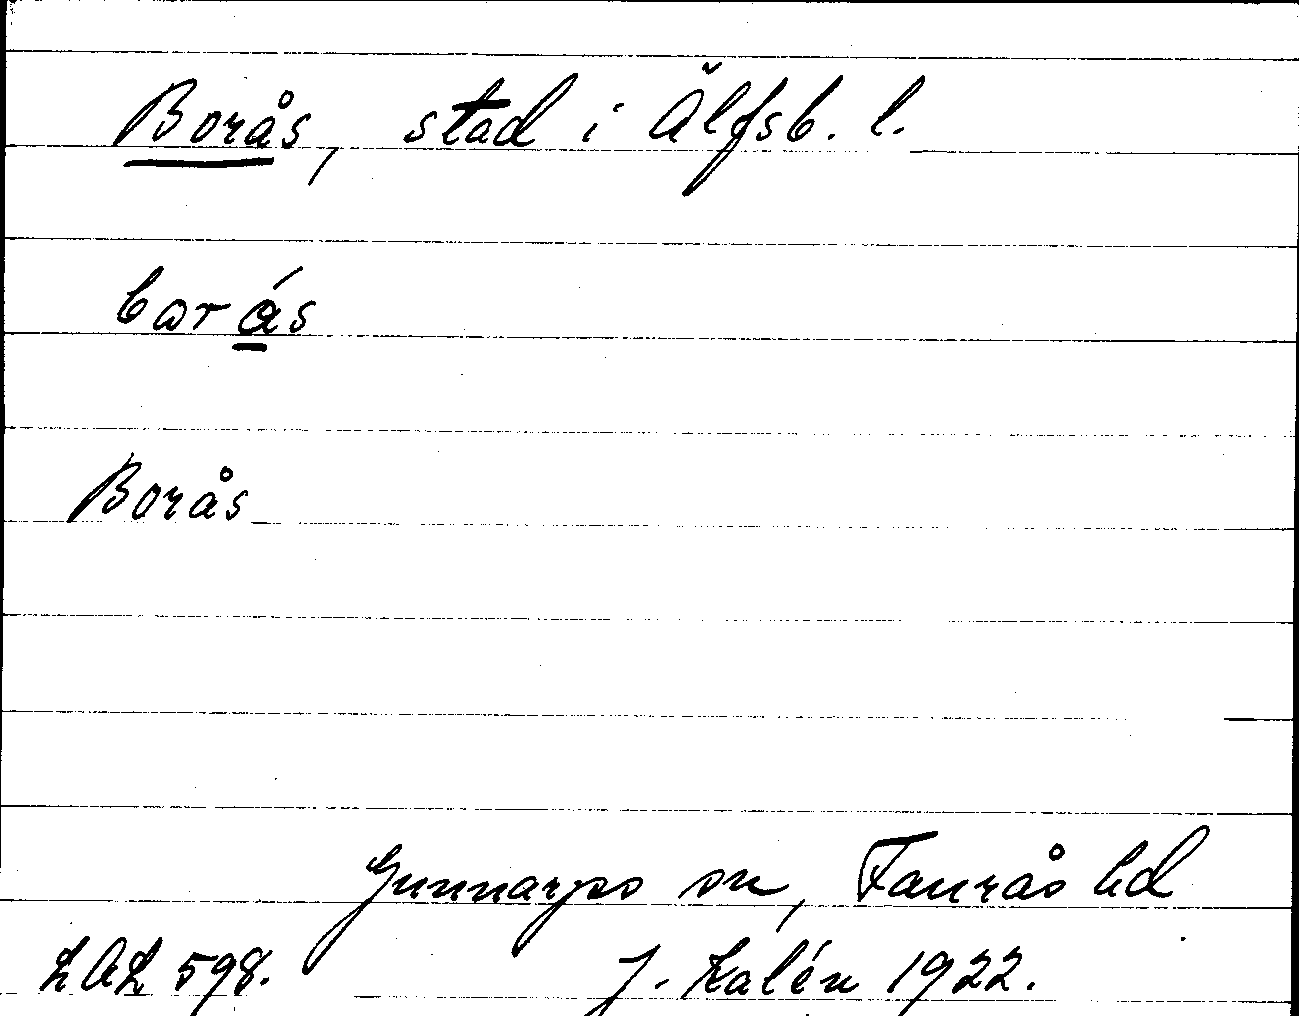 Borås, stad i Älfsb. l.
borás
Borås
Gunnarps sn, Faurås hd
LAL 598.
J. Kalén 1922.